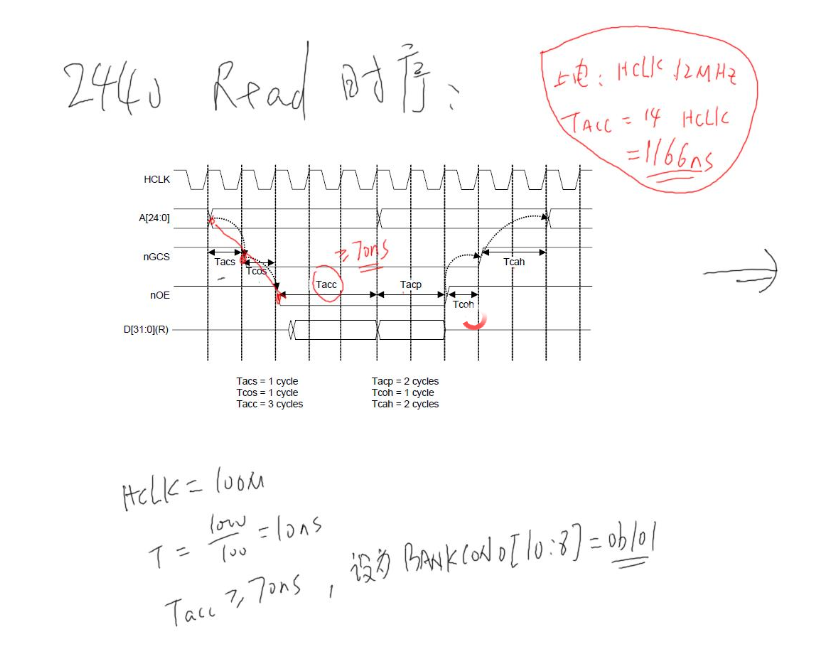 2440 Read 时序:
上电: HCLK 12MHz
TACC = 14 HCLK
= 1166ns
HCLK
A[24:0]
nGCS
Tacs
Tcos
≥70ns
Tcah
nOE
Tacc
Tacp
Tcoh
D[31:0](R)
Tacs = 1 cycle
Tcos = 1 cycle
Tacc = 3 cycles
Tacp = 2 cycles
Tcoh = 1 cycle
Tcah = 2 cycles
HCLK = 100M
T = 1000/100 = 10ns
Tacc ≥ 70ns , 设为 BANKCON0[10:8] = 0b101